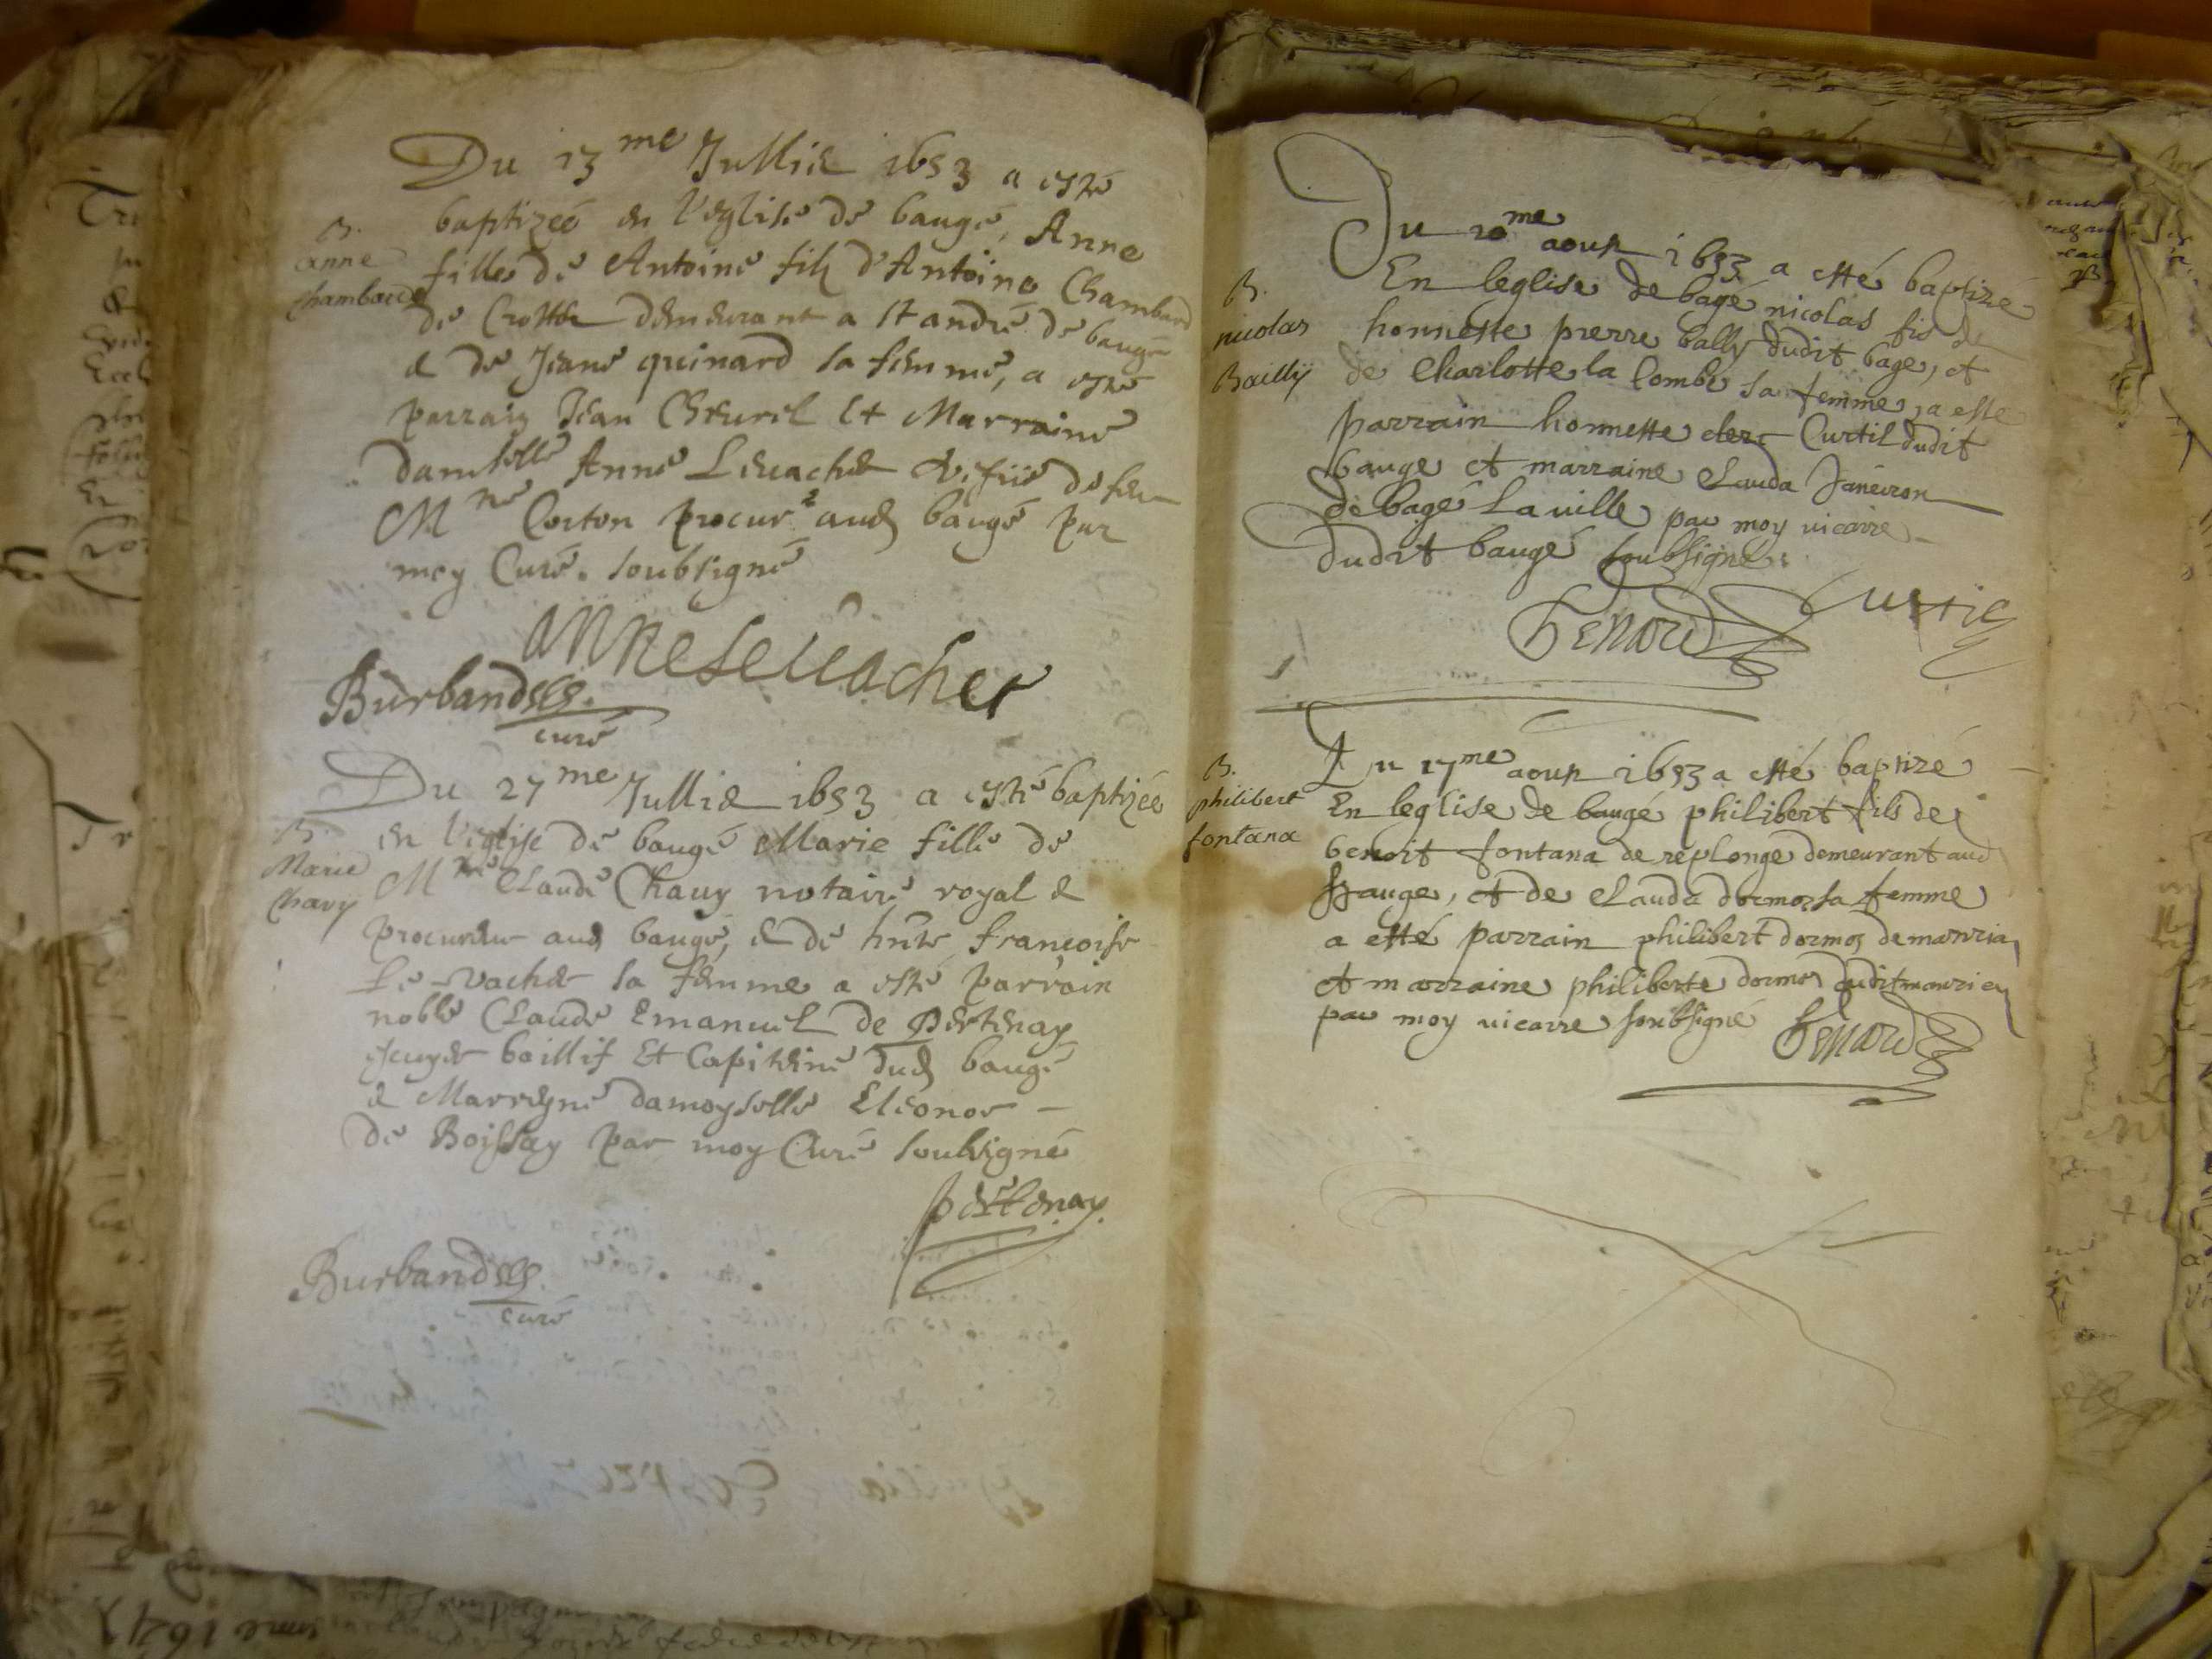 Du 13me Jullié 1653 a esté
baptizeé en l'eglise de baugé, Anne
B.
anne
chambard
fille de Antoine filz d'Antoine Chambard
de Crottet demeurant a St andré de baugé
& de Jeane quinard sa femme, a esté
parrain Jean et Marraine
damselle Anne Levachet de feu
Mre Corton procur aud baugé par
moy Curé soubsigné
Anne Levacher
Burbandelle
curé
Du 27me Jullié 1653 a esté baptizée
B.
Marie
Chavy
en l'eglise de baugé Marie fille de
Mre Claude Chavy notaire royal &
procureur aud baugé, & de hnte francoise
Le vachet sa femme a esté parrain
noble Claude Emanuel de Pertenay
escuyer baillif Et Capitaine dud baugé
& Marreyne damoyselle Eleonor
de Boissay par moy Curé soubsigné
pertenay
Burbandelle
curé
Du 10me aoust 1653 a esté baptizé
B.
nicolas
Bailly
En leglise de bagé nicolas fis de
honneste pierre bally dudit bage, et
de Charlotte la Combe sa femme, a esté
parrain honneste Curtil dudit
bauge et marraine Clauda Janeiron
de bagé la ville par moy vicaire
dudit baugé soubsigné.
Curtil
Benard
Du 17me aoust 1653 a esté baptizé
B.
philibert
fontana
En leglise de baugé philibert fils de
benoit fontana de replonge demeurant aud
bauge, et de Clauda dormos sa femme
a esté parrain philibert dormos de manzia
et marraine philiberte dormos dudit manzien
par moy vicaire soubsigné
Benard